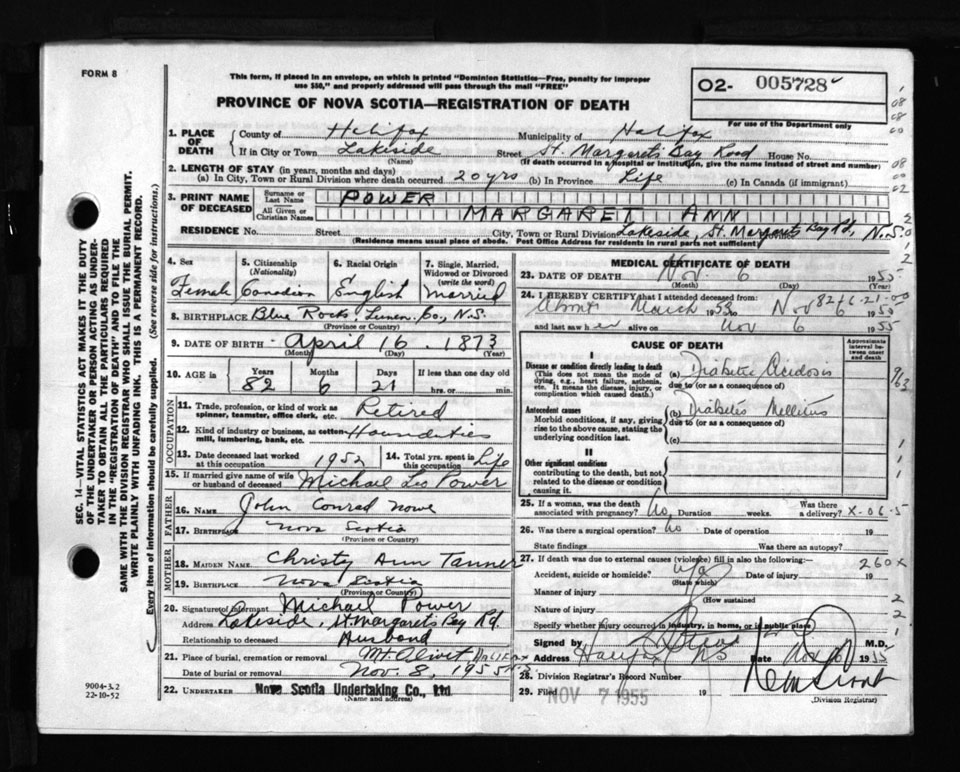 FORM 8
This form, if placed in an envelope, on which is printed "Dominion Statistics—Free, penalty for improper
use $50," and properly addressed will pass through the mail "FREE"
PROVINCE OF NOVA SCOTIA—REGISTRATION OF DEATH
O2- 005728
For use of the Department only
1. PLACE OF DEATH
County of Halifax Municipality of Halifax
If in City or Town Lakeside Street St. Margarets Bay Road House No.
(Name) (If death occurred in a hospital or institution, give the name instead of street and number)
2. LENGTH OF STAY (in years, months and days)
(a) In City, Town or Rural Division where death occurred 20 yrs (b) In Province Life (c) In Canada (if immigrant)
3. PRINT NAME OF DECEASED
Surname or Last Name POWER
All Given or Christian Names MARGARET ANN
RESIDENCE No. Street City, Town or Rural Division Lakeside, St. Margarets Bay Rd, N.S.
(Residence means usual place of abode. Post Office Address for residents in rural parts not sufficient)
4. Sex Female
5. Citizenship (Nationality) Canadian
6. Racial Origin English
7. Single, Married, Widowed or Divorced (write the word) Married
8. BIRTHPLACE Blue Rocks, Lunen. Co., N.S.
(Province or Country)
9. DATE OF BIRTH April 16 1873
(Month) (Day) (Year)
10. AGE in Years Months Days If less than one day
82 6 21 hrs. or min.
OCCUPATION
11. Trade, profession, or kind of work as spinner, teamster, office clerk, etc. Retired
12. Kind of industry or business, as cotton-mill, lumbering, bank, etc.
13. Date deceased last worked at this occupation 1952
14. Total yrs. spent in this occupation Life
15. If married give name of wife or husband of deceased Michael Leo Power
FATHER
16. Name John Conrad Nowe
17. Birthplace Nova Scotia
(Province or Country)
MOTHER
18. MAIDEN NAME Christy Ann Tanner
19. BIRTHPLACE Nova Scotia
(Province or Country)
20. Signature of informant Michael Power
Address Lakeside, St. Margarets Bay Rd.
Relationship to deceased Husband
21. Place of burial, cremation or removal Mt. Olivet Halifax
Date of burial or removal Nov. 8, 1955 N.S.
22. UNDERTAKER Nova Scotia Undertaking Co., Ltd
(Name and address)
MEDICAL CERTIFICATE OF DEATH
23. DATE OF DEATH Nov. 6 1955
(Month) (Day) (Year)
24. I HEREBY CERTIFY that I attended deceased from:
About March 1953 to Nov 6 1955
and last saw her alive on Nov 6 1955
82-6-21-00
CAUSE OF DEATH
Approximate interval between onset and death
I
Disease or condition directly leading to death
(This does not mean the mode of dying, e.g., heart failure, asthenia, etc. It means the disease, injury, or complication which caused death.)
(a) Diabetic Acidosis
due to (or as a consequence of)
Antecedent causes
Morbid conditions, if any, giving rise to the above cause, stating the underlying condition last.
(b) Diabetes Mellitus
due to (or as a consequence of)
(c)
II
Other significant conditions
contributing to the death, but not related to the disease or condition causing it.
25. If a woman, was the death associated with pregnancy? No Duration weeks. Was there a delivery? X-06-5
26. Was there a surgical operation? No Date of operation 19
State findings Was there an autopsy?
27. If death was due to external causes (violence) fill in also the following:
260X
Accident, suicide or homicide? Date of injury 19
(State which)
Manner of injury
(How sustained
Nature of injury
Specify whether injury occurred in industry, in home, or in public place
Signed by M.D.
Address Halifax NS Date 1955
28. Division Registrar's Record Number
29. Filed NOV 7 1955 19
(Division Registrar)
SEC. 14—VITAL STATISTICS ACT MAKES IT THE DUTY
OF THE UNDERTAKER OR PERSON ACTING AS UNDER-
TAKER TO OBTAIN ALL THE PARTICULARS REQUIRED
IN THE "REGISTRATION OF DEATH" AND TO FILE THE
SAME WITH THE DIVISION REGISTRAR WHO SHALL ISSUE THE BURIAL PERMIT.
WRITE PLAINLY WITH UNFADING INK. THIS IS A PERMANENT RECORD.
Every item of information should be carefully supplied. (See reverse side for instructions.)
9004-3.2
22-10-52